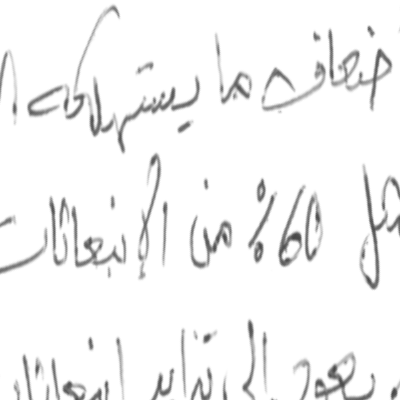 أضعاف ما يستهلكه
60% من الإنبعاثات
يعود إلى تزايد إنبعاثات